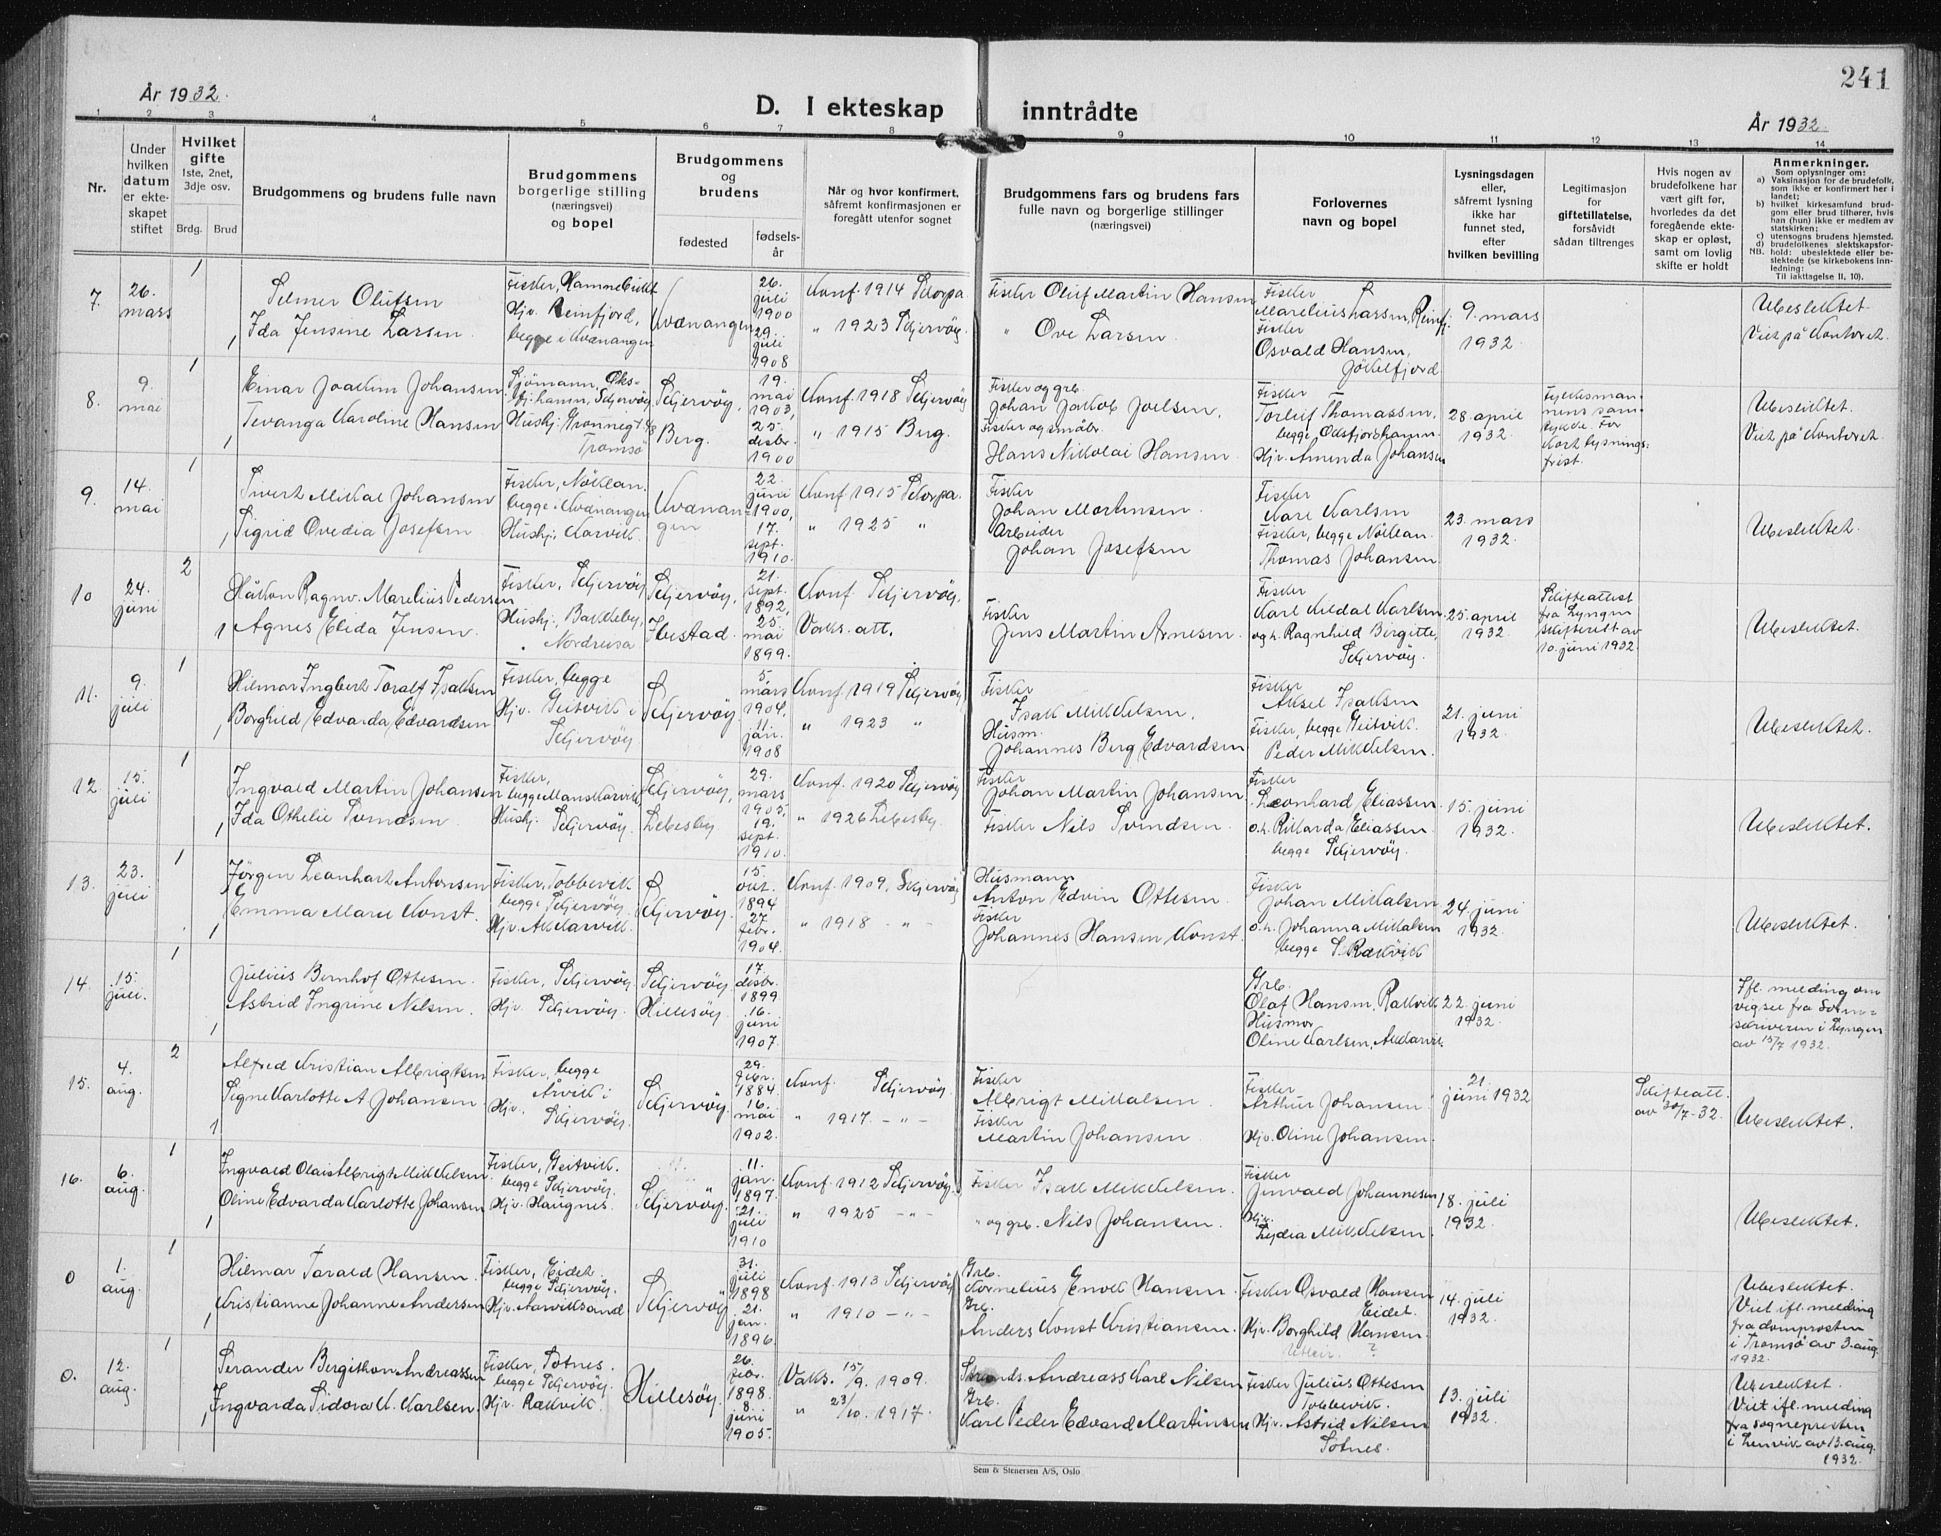 241
År 1932.
D. I ekteskap inntrådte
År 1932.
1 2 3 4 5 6 7 8 9 10 11 12 13 14
Nr.
Under hvilken datum er ekteskapet stiftet
Hvilket gifte
1ste, 2net, 3dje osv.
Brdg. Brud
Brudgommens og brudens fulle navn
Brudgommens
borgerlige stilling
(næringsvei)
og bopel
Brudgommens
og
brudens
fødested
fødsels-
år
Når og hvor konfirmert,
såfremt konfirmasjonen er
foregått utenfor sognet
Brudgommens fars og brudens fars
fulle navn og borgerlige stillinger
(næringsvei)
Forlovernes
navn og bopel
Lysningsdagen
eller,
såfremt lysning
ikke har
funnet sted,
efter
hvilken bevilling
Legitimasjon
for
giftetillatelse,
forsåvidt
sådan tiltrenges
Hvis nogen av
brudefolkene har
vært gift før,
hvorledes da det
foregående ekte-
skap er opløst,
samt om lovlig
skifte er holdt
Anmerkninger.
Som oplysninger om:
a) Vaksinasjon for de brudefolk,
som ikke er konfirmert her i
landet;
b) hvilket kirkesamfund brud-
gom eller brud tilhører, hvis
han (hun) ikke er medlem av
statskirken;
c) utensogns brudens hjemsted.
d) brudefolkenes slektskapsfor-
NB. hold: ubeslektede eller be-
slektede (se kirkebokens inn-
ledning:
Til iakttagelse II, 10).
7. 26. mars
1
1
Selmer Olufsen
Ida Jensine Larsen
Fisker,
Hjv. Reinfjord,
begge i Kvænangen
Kvænangen
26. juli 1900
29. juli 1908
Konf. 1914 Skorpa
" 1923 Skjervöy
Fisker Oluf Martin Hansen
" Ove Larsen
Fisker
Marelius Larssen, Reinfj.
Fisker
Osvald Hansen,
Jökelfjord
9. mars
1932
Ubeslektet
Viet på kontoret.
8. 9. mai
1
1
Einar Joakim Johansen
Tevanga Karoline Hansen
Sjömann, Oks-
fj.hamn, Skjervöy
Hushj. Grönnegt.
Tromsö
Skjervöy,
Berg.
19. mai 1903,
25. desbr. 1900
Konf. 1918 Skjervöy
" 1915 Berg.
Fisker og grb.
Johan Jakob Joelsen,
Fisker og småbr.
Hans Nikolai Hansen
Fisker
Torleif Thomassen,
begge Oksfjordhamn
Hjv. Amenda Johansen
28. april
1932
Fylkesman-
nens sam-
tykke for
kort lysnings-
frist.
Ubeslektet.
Viet på kontoret.
9. 14. mai
1
1
Sivert Mikal Johansen
Sigrid Ovedia Josefsen
Fisker, Nöklan.
begge i Kvænangen
Hushj. Karvik.
Kvænan-
gen
22. juni 1900,
17. sept. 1910.
Konf. 1915 Skorpa.
" 1925 "
Fisker
Johan Martinsen
Arbeider
Johan Josefsen
Fisker
Kare Karlsen
Fisker, begge Nöklan.
Thomas Johansen
23. mars
1932.
Ubeslektet.
10 24. juni
2
1
Håkon Ragnv. Marelius Pedersen
Agnes Elida Jensen
Fisker, Skjervöy
Hushj. Bakkeby,
Nordreisa
Skjervöy,
Ibestad.
21. sept. 1892,
25. mai 1899.
Konf. Skjervöy.
Vaks. att.
Fisker
Jens Martin Arnesen
Fisker
Karl Mikal Karlsen
og h. Ragnhild Birgitte,
Skjervöy.
25. april
1932.
Skifteattest
fra Lyngen
skifterett av
10. juni 1932.
Ubeslektet.
11. 9. juli
1
1
Hilmar Ingbert Toralf Isaksen
Borghild Edvarda Edvardsen
Fisker, begge
Hjv. Geitvik i
Skjervöy
Skjervöy
5. mars 1904,
11. jan. 1908
Konf. 1919 Skjervöy
" 1923 "
Fisker
Isak Mikkelsen,
Husm.
Johannes Berg Edvardsen
Fisker
Aksel Isaksen
Fisker, begge Geitvik.
Peder Mikkelsen.
21. juni
1932.
Ubeslektet.
12 15. juli
1
1
Ingvald Martin Johansen
Ida Othelie Svendsen
Fisker,
begge Manskarvik,
Hushj. Skjervöy.
Skjervöy,
Lebesby
29. mars 1905,
19. sept. 1910.
Konf. 1920 Skjervöy
" 1926 Lebesby.
Fisker
Johan Martin Johansen
Fisker Nils Svendsen
Fisker
Leonhard Eliassen
o.h. Rikarda Eliassen
begge Skjervöy.
15. juni
1932.
Ubeslektet.
13. 23. juli
1
1
Jörgen Leonhart Antonsen
Emma Marie Konst.
Fisker, Tobbevik
begge Skjervöy.
Hjv. Akkarvik.
Skjervöy
15. okt. 1894
27. febr. 1904.
Konf. 1909, Skjervöy
" 1918 - " -
Husmann
Anton Edvin Ottesen
Fisker
Johannes Hansen Konst.
Fisker
Johan Mikalsen
o.h. Johanna Mikalsen
begge S. Rakvik
24. juni
1932.
Ubeslektet.
14. 15. juli.
1
1
Julius Bernhof Ottesen.
Astrid Ingrine Nilsen.
Fisker, Skjervöy.
Hjv. Skjervöy.
Skjervöy.
Hillesöy.
17. desbr. 1899
16. juni 1907
Grb.
Olaf Hansen, Rakvik
Husmor
Oline Karlsen, Akkarvik.
22. juni
1932.
Ifl. melding om
vigsel fra Soren-
skriveren i Lyngen
av 15/7 1932.
15. 4. aug.
2
1
Alfred Kristian Albrigtsen
Signe Karlotte A Johansen
Fisker, begge
Årvik i
Hjv. Skjervöy.
Skjervöy
29. febr. 1884
16. mai 1902.
Konf. Skjervöy
" 1917 - " -
Fisker
Albrigt Mikalsen
Fisker
Martin Johansen
Fisker
Arthur Johansen
Hjv. Oline Johansen.
21.
juni 1932
Skifteatt.
av 30/7-32.
Ubeslektet.
16. 6. aug.
1
1
Ingvald Olais Albrigt Mikkelsen
Oline Edvarda Karlotte Johansen
Fisker, Geitvik.
begge Skjervöy.
Hjv. Haugnes.
Skjervöy.
11. jan. 1897.
21. juli 1910
Konf. 1912 Skjervöy.
" 1925 - " -
Fisker Isak Mikkelsen.
" og grb. Nils Johansen.
Fisker
Jenvald Johannesen
Hjv.
Lydia Mikkelsen.
18. juli
1932.
Ubeslektet.
0 1. aug.
1
1
Hilmar Torald Hansen.
Kristianne Johanne Andersen
Fisker, Eidet
begge Skjervöy.
Hjv. Aarviksand
Skjervöy
31. juli 1898
21. jan. 1896.
Konf. 1913 Skjervöy
" 1910 - " -
Grb.
Kornelius Envik Hansen.
Grb.
Anders Konst Kristiansen.
Fisker Osvald Hansen
Eidet.
Hjv. Borghild Hansen.
?
14. juli
1932.
Ubeslektet.
Viet ifl. melding
fra domprosten
i Tromsö av 3. aug.
1932.
0. 12. aug.
1
1
Serander Bergithon Andreassen
Ingvarda Sidora K. Karlsen.
Fisker, Sotnes.
begge Skjervöy.
Hjv. Rakvik.
Hillesöy.
26. febr. 1898.
8. juni 1905.
Vaks. 15/9. 1909.
" 23/10. 1917.
Andreass Karl Nilsen
Grb.
Karl Peder Edvard Martinsen
Fisker Julius Ottesen
Tobbevik.
Hjv. Astrid Nilsen
Sotnes.
13. juli
1932.
Ubeslektet.
Viet ifl. melding
fra sognepresten
i Lenvik av 13. aug.
1932.
Sem & Stenersen A/S, Oslo